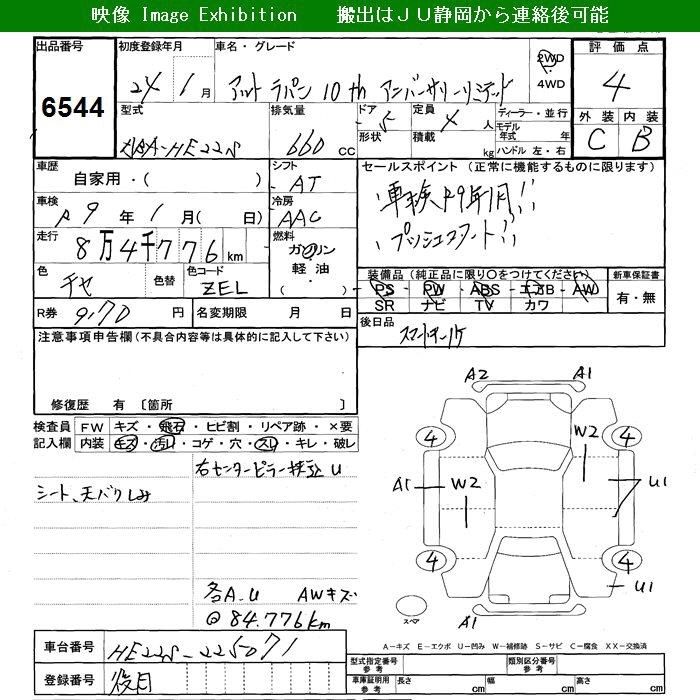 映像 Image Exhibition 搬出はＪＵ静岡から連絡後可能
出品番号 初度登録年月 車名・グレード 評価点
6544
24年1月 アルト ラパン 10th アニバーサリーリミテッド 2WD・4WD 4
型式 排気量 ドア 定員 ディーラー・並行 外装 内装
-HE22S 660 cc 5 4人 モデル年式 年 C B
形状 積載 kg ハンドル 左・右
車歴 シフト セールスポイント (正常に機能するものに限ります)
自家用・( ) AT
車検 冷房 車検R9年1月!!
R9年1月( 日) AAC プッシュスタート!!
走行 燃料
8万4千776km ガソリン
色 色替 色コード 軽油・( )
チャ ZEL 装備品 (純正品に限り○をつけてください) 新車保証書
PS・PW・ABS・エアB・AW 有・無
SR ナビ TV カワ
R券 9,170円 名変期限 月 日 後日品
注意事項申告欄 (不具合内容等は具体的に記入して下さい) スマートキー1ケ
修復歴 有 〔箇所 〕
検査員 FW キズ・飛石・ヒビ割・リペア跡・×要
記入欄 内装 キズ・汚れ・コゲ・穴・スレ・キレ・破レ
右センターピラー U
シート、天バリしみ
各A.U AWキズ
@84.776km
A2 A1
4 4
W2
A1 W2 U1
4 4
U1
スペア A1
A－キズ E－エクボ U－凹み W－補修跡 S－サビ C－腐食 XX－交換済
車台番号 HE22S-225071
型式指定番号 参考 類別区分番号 参考
登録番号 車庫証明用 参考 長さ cm 幅 cm 高さ cm